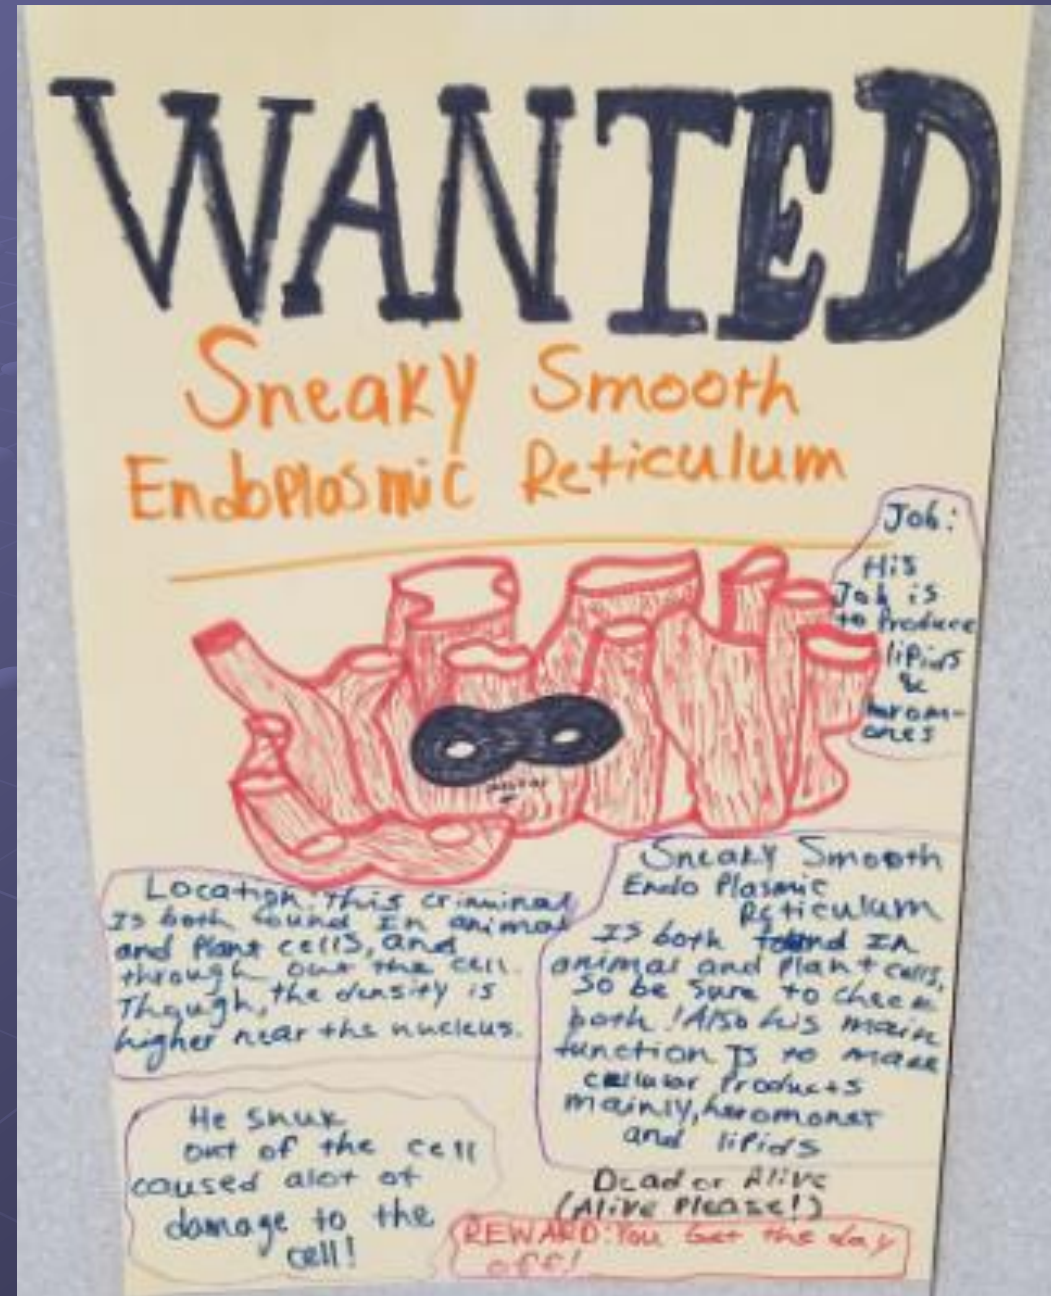 WANTED
Sneaky Smooth
Endoplasmic Reticulum
Job:
His
Job is
to Produce
lipids
&
horom-
ones
Location: This criminal
Is both found In animal
and Plant cells, and
through out the cell.
Though, the density is
higher near the nucleus.
Sneaky Smooth
Endo Plasmic
Reticulum
Is both found In
animal and Plant cells,
So be sure to check
both! Also his main
function Is to make
cellular Products
mainly, horomones
and lipids
He snuk
out of the cell
caused alot of
damage to the
cell!
Dead or Alive
(Alive Please!)
REWARD: You Get the day
off!